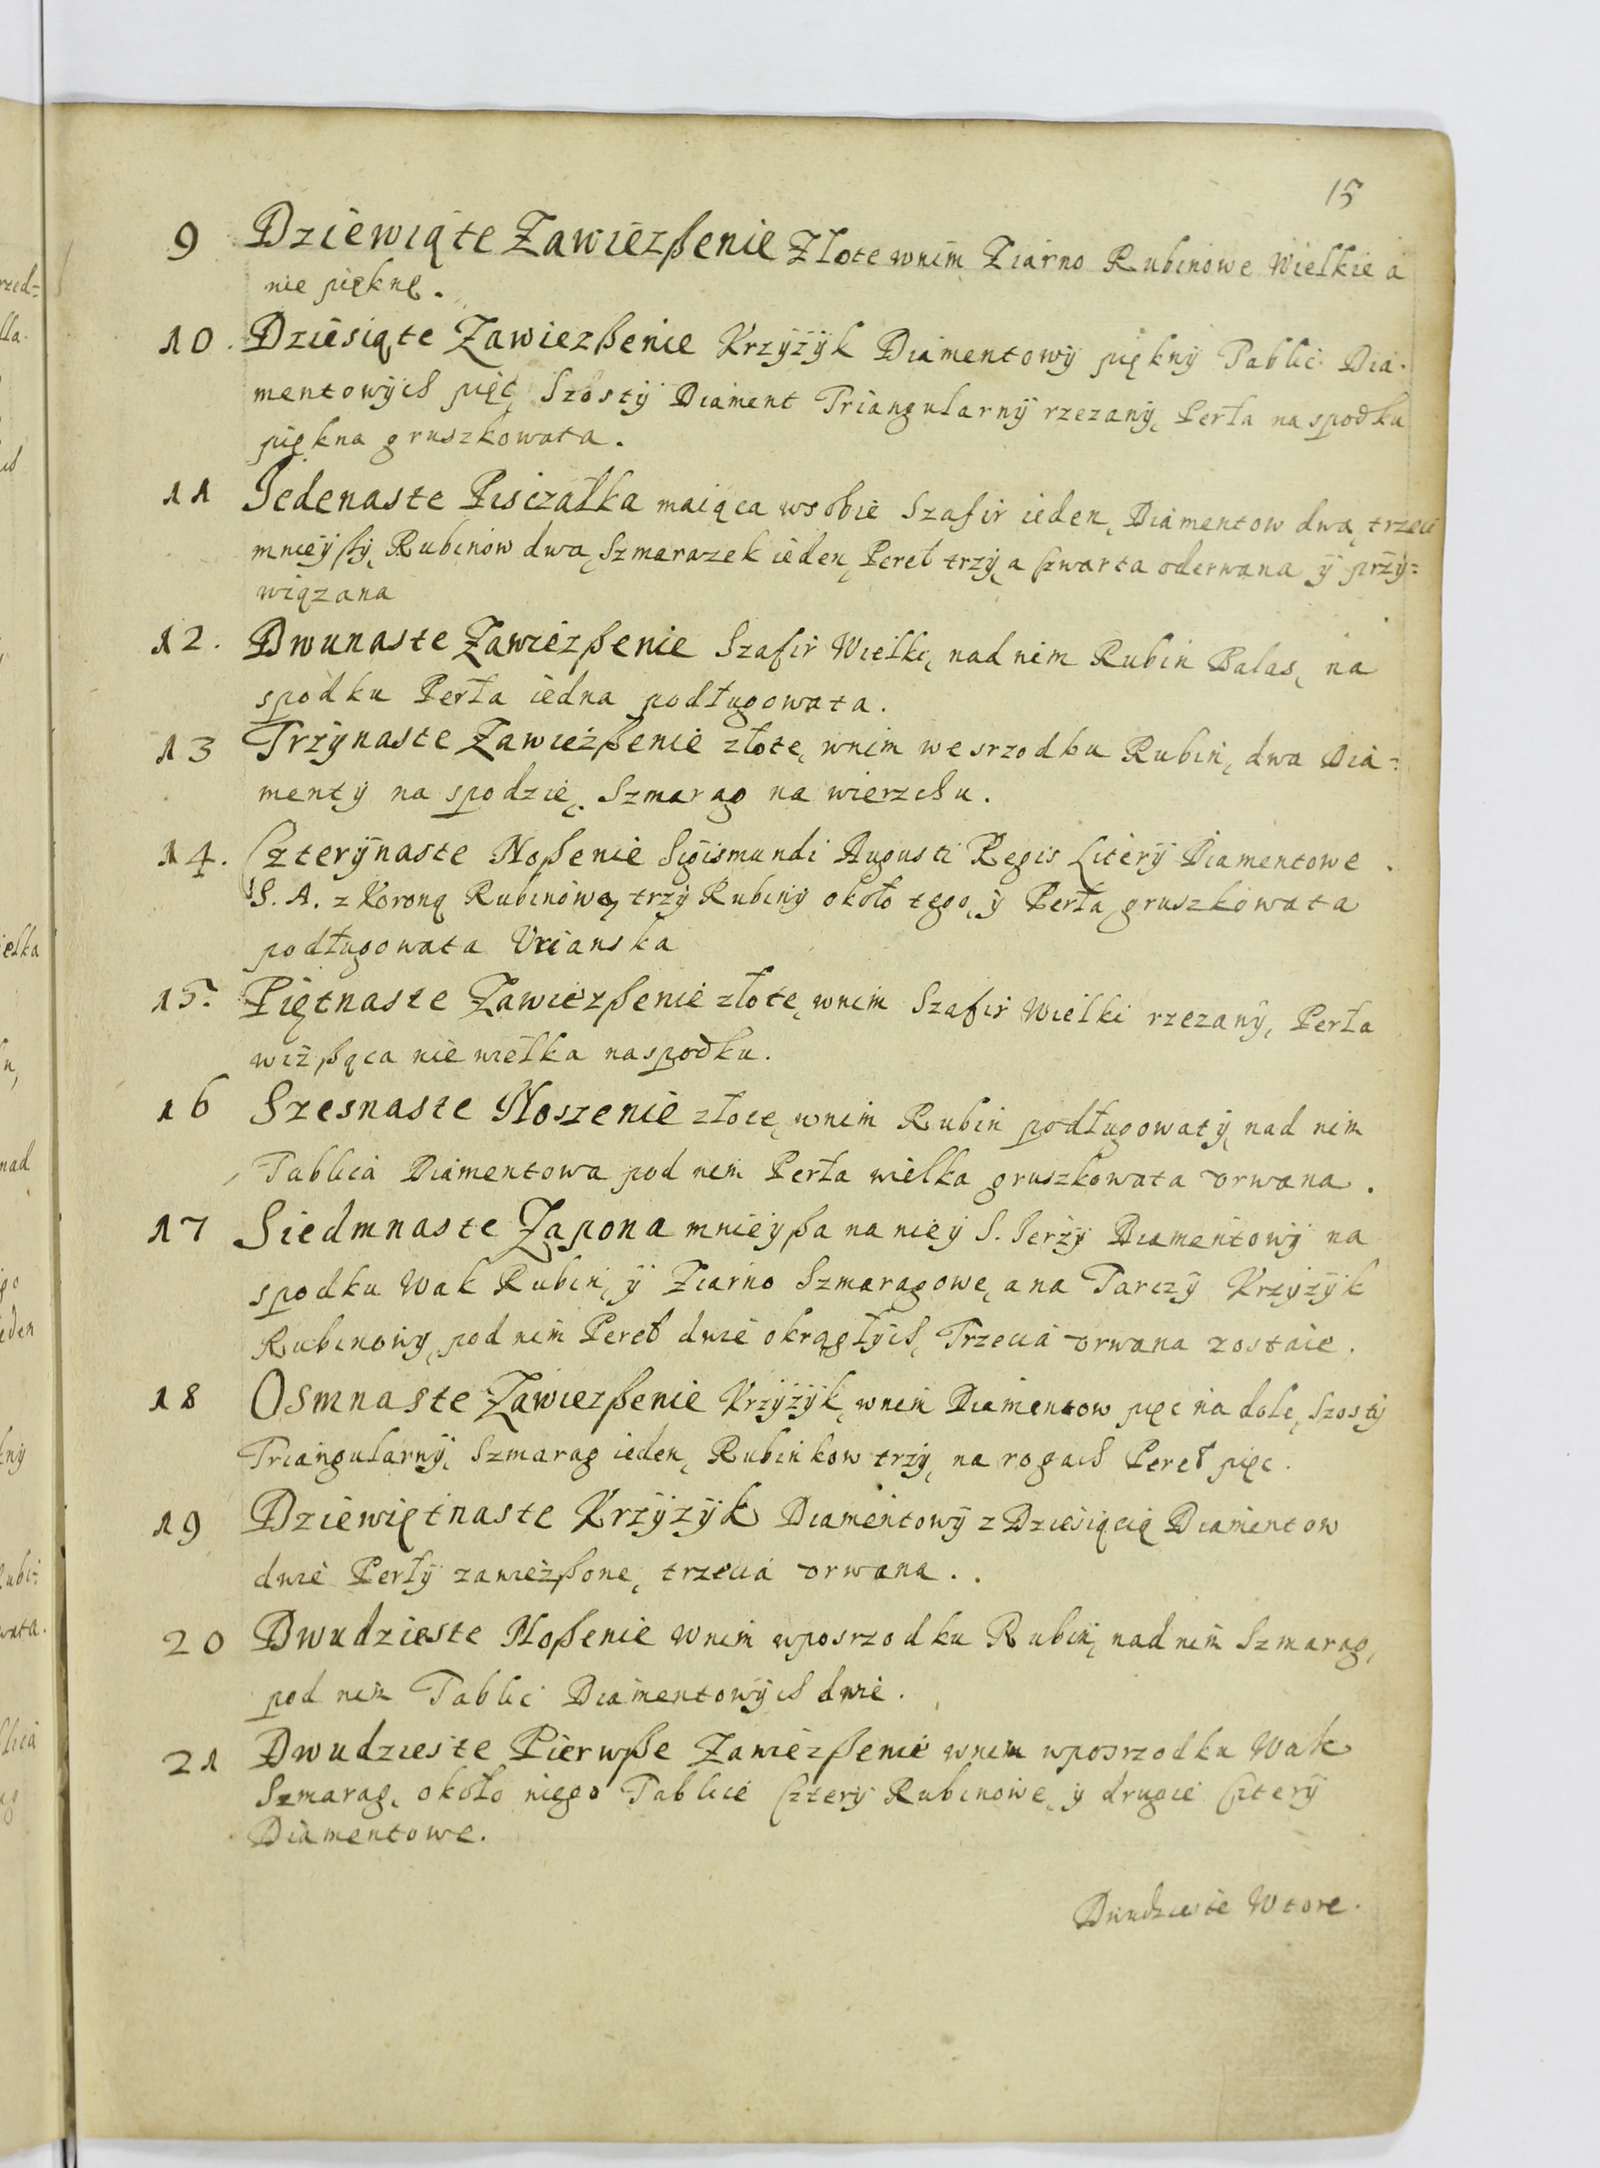 15
9 Dziewiąte Zawiezßenie Złote wnim Ziarno Rubinowe Wielkie a
nie piękne.
10. Dziesiąte Zawiezßenie Krzyżyk Diamentowy piękny Tablic Dia-
mentowych pięć, Szosty Diament Triangularny rzezany, Perła na spodku
piękna gruszkowata.
11 Jedenaste Pisczałka maiąca wsobie Szafir ieden, Diamentow dwa, trzeci
mnieyßy, Rubinow dwa, Szmarazek ieden, Pereł trzy, a Czwarta oderwana y przy=
wiązana
12. Dwunaste Zawiezßenie Szafir Wielki, nad nim Rubin Balas, na
spodku Perła iedna podługowata.
13 Trzynaste Zawieżßenie złote, wnim wesrzodku Rubin, dwa Dia=
menty na spodzie, Szmarag na wierzchu.
14. Czterynaste Noßenie Sigismundi Augusti Regis Litery Diamentowe
S. A. z Koroną Rubinową, trzy Rubiny około tego, y Perła gruszkowata
podługowata Urianska
15. Piętnaste Zawieżßenie złote, wnim Szafir Wielki rzezany, Perła
wiżßąca nie wielka naspodku.
16 Szesnaste Noszenie złote, wnim Rubin podługowaty, nad nim
Tablica Diamentowa pod nim Perła wielka gruszkowata vrwana.
17 Siedmnaste Zapona mnieyßa na niey S. Jerży Diamentowy na
spodku Wak Rubin, y Ziarno Szmaragowe, a na Tarczy Krzyżyk
Rubinowy, pod nim Pereł dwie okrągłych, Trzecia vrwana zostaie.
18 Osmnaste Zawiezßenie Krzyżyk, wnim Diamentow pięc na dole, Szosty
Triangularny, Szmarag ieden, Rubinkow trzy, na rogach Pereł pięc.
19 Dziewiętnaste Krzyżyk Diamentowy z Dziesiącią Diamentow
dwie Perły zawieżßone, trzecia vrwana..
20 Dwudzieste Noßenie wnim wposrzodku Rubin, nad nim Szmarag,
pod nim Tablic Diamentowych dwie.
21 Dwudzieste Pierwße Zawieżßenie wnim wposrzodku Wak
Szmarag, około niego Tablice Cztery Rubinowe, y drugie Cztery
Diamentowe.
Dwudzieste Wtore.